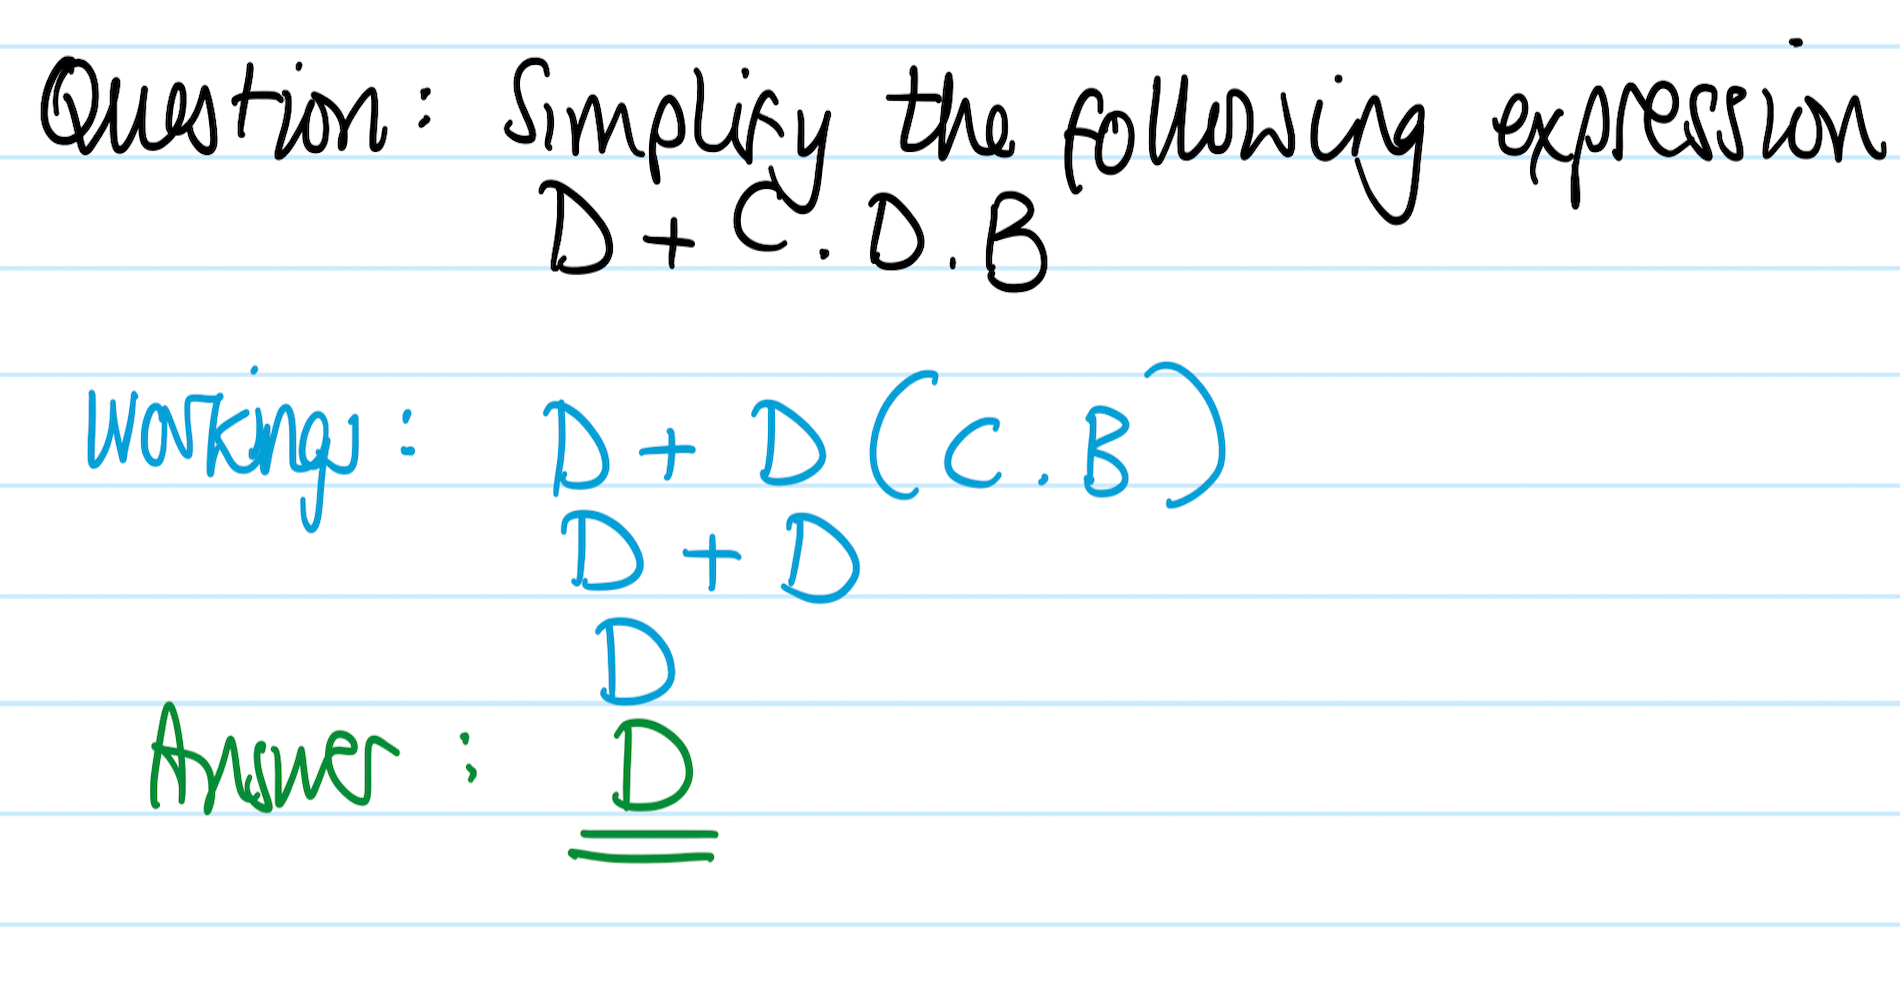 Question: Simplify the following expression
D + C . D . B
Workings: D + D (C . B)
D + D
D
Answer: D